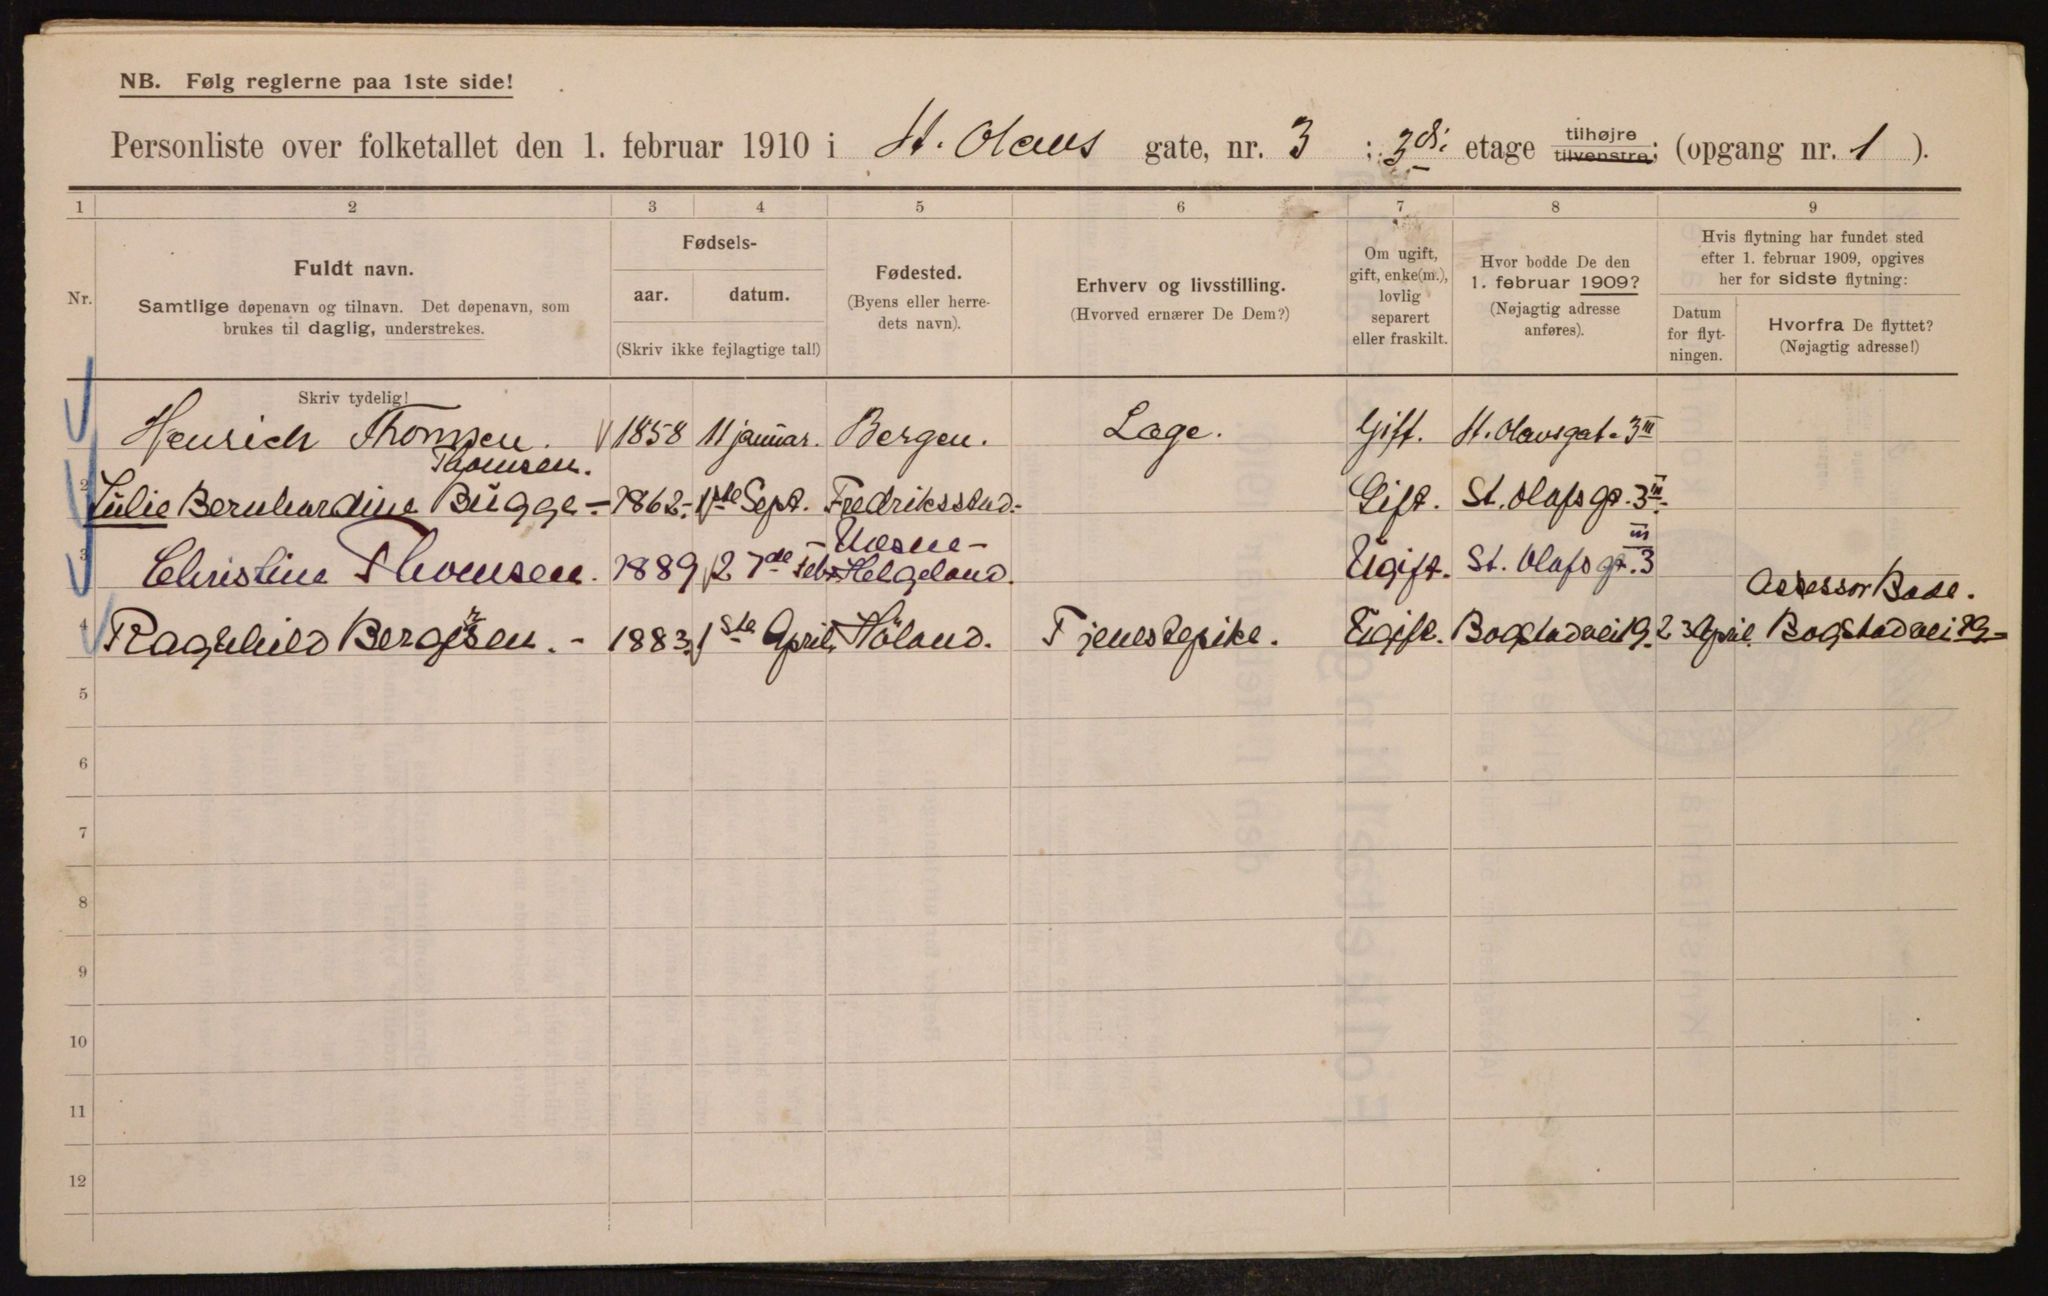 NB. Følg reglerne paa 1ste side!
Personliste over folketallet den 1. februar 1910 i St. Olavs gate, nr. 3 ; 3die etage tilhøjre tilvenstre; (opgang nr. 1 ).
1 2 3 4 5 6 7 8 9
Nr.
Fuldt navn.
Samtlige døpenavn og tilnavn. Det døpenavn, som
brukes til daglig, understrekes.
Fødsels-
aar. datum.
(Skriv ikke fejlagtige tal!)
Fødested.
(Byens eller herre-
dets navn).
Erhverv og livsstilling.
(Hvorved ernærer De Dem?)
Om ugift,
gift, enke(m.),
lovlig
separert
eller fraskilt.
Hvor bodde De den
1. februar 1909?
(Nøjagtig adresse
anføres).
Hvis flytning har fundet sted
efter 1. februar 1909, opgives
her for sidste flytning:
Datum
for flyt-
ningen.
Hvorfra De flyttet?
(Nøjagtig adresse!)
Skriv tydelig!
Henrich Thomsen. 1858 11 januar. Bergen. Læge. Gift. St. Olavsgat. 3 III
Thomsen.
2 Julie Bernhardine Bugge- 1862- 1ste Sept. Fredriksstad- Gift. St. Olafs gt. 3 III
- Næsne -
3 Christine Thomsen. 1889 27de febr Helgeland. Ugift. St. Olafs gt. 3 III
Assessor Bade.
4 Ragnhild Bergersen. - 1883. 1ste April. Höland. Tjenestepike. Ugift. Bogstadvei 19. 23 April. Bogstadvei 19-
5
6
7
8
9
10
11
12